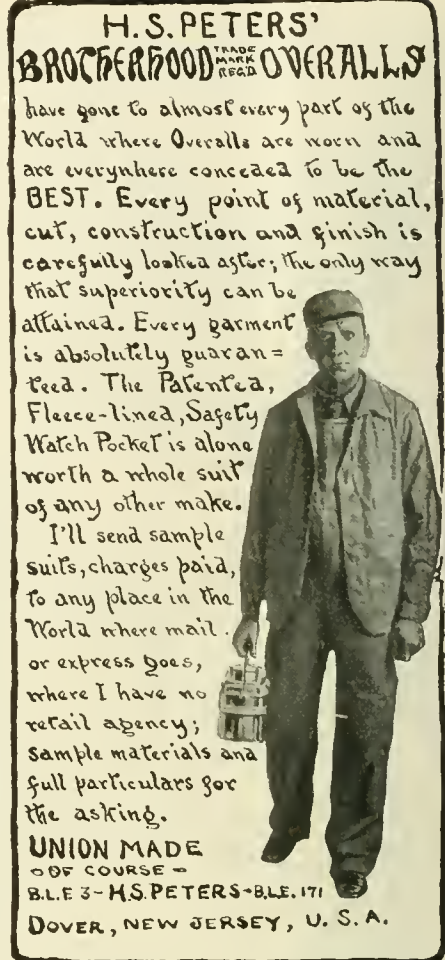 H.S. PETERS'
BROTHERHOOD TRADE MARK REG'D OVERALLS
have gone to almost every part of the
World where Overalls are worn and
are everywhere conceded to be the
BEST. Every point of material,
cut, construction and finish is
carefully looked after; the only way
that superiority can be
attained. Every garment
is absolutely guaran=
teed. The Patented,
Fleece-lined, Safety
Watch Pocket is alone
worth a whole suit
of any other make.
I'll send sample
suits, charges paid,
to any place in the
World where mail
or express goes,
where I have no
retail agency;
sample materials and
full particulars for
the asking.
UNION MADE
OF COURSE
B.L.E 3-H.S.PETERS-B.L.E. 171
DOVER, NEW JERSEY, U.S.A.